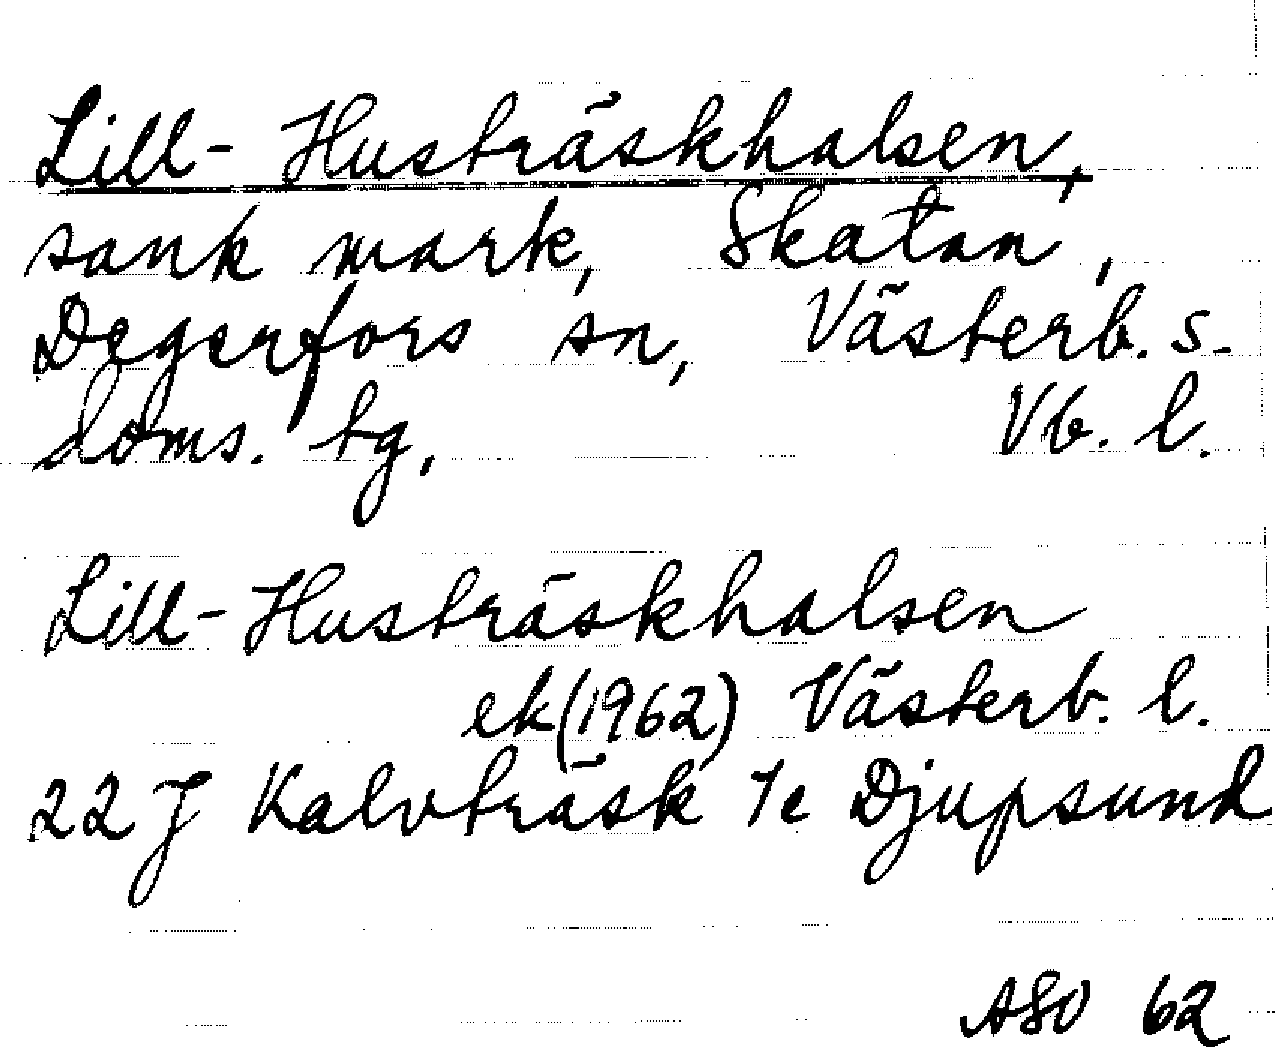 Lill-Husträskhalsen,
sank mark, Skatan,
Degerfors sn, Västerb. s.
doms. tg, Vb. l.
Lill-Husträskhalsen
ek (1962) Västerb. l.
22 J Kalvträsk 7e Djupsund
ASO 62